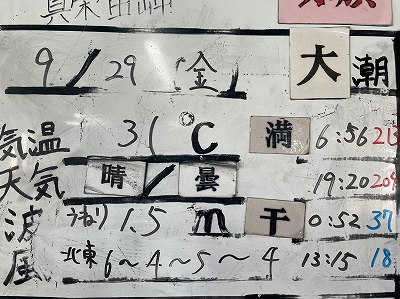 真栄田岬
9/29(金) 大潮
気温 31℃ 満 6:56 213
天気 晴/曇 19:20 209
波 うねり1.5m 干 0:52 37
風 北東6～4～5～4 13:15 18